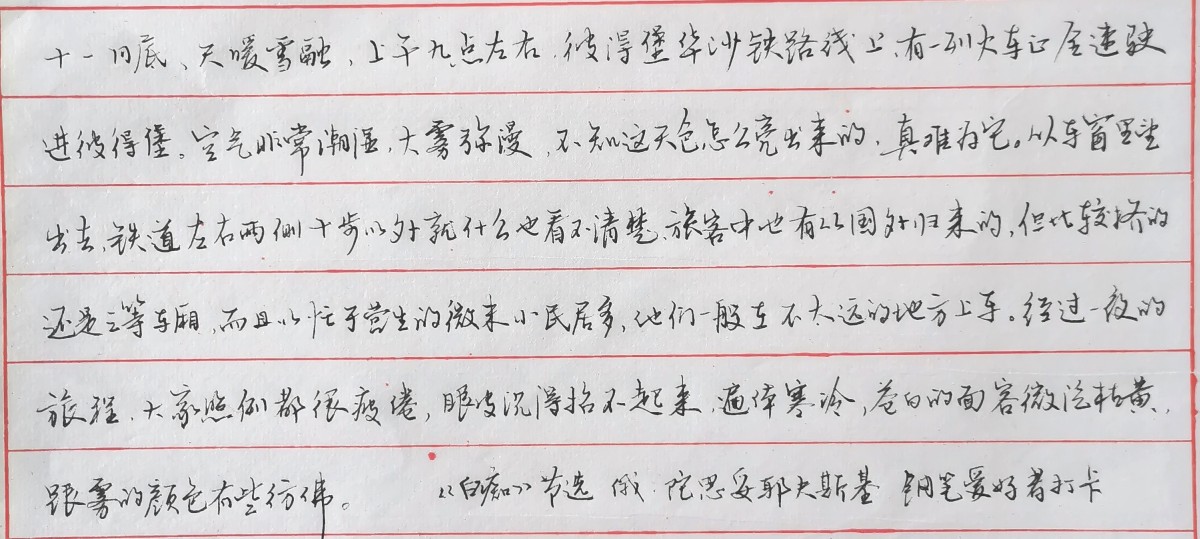 十一月底、天暖雪融，上午九点左右，彼得堡华沙铁路线上，有一列火车正全速驶
进彼得堡。空气非常潮湿，大雾弥漫，不知这天色怎么亮出来的，真难为它。从车窗里望
出去，铁道左右两侧十步以外就什么也看不清楚，旅客中也有从国外归来的，但比较挤的
还是三等车厢，而且以忙于营生的微末小民居多，他们一般在不太远的地方上车。经过一夜的
旅程，大家照例都很疲倦，眼皮沉得抬不起来，遍体寒冷，苍白的面容微泛枯黄，
跟雾的颜色有些彷彿。 《白痴》节选 俄·陀思妥耶夫斯基 钢笔爱好者打卡